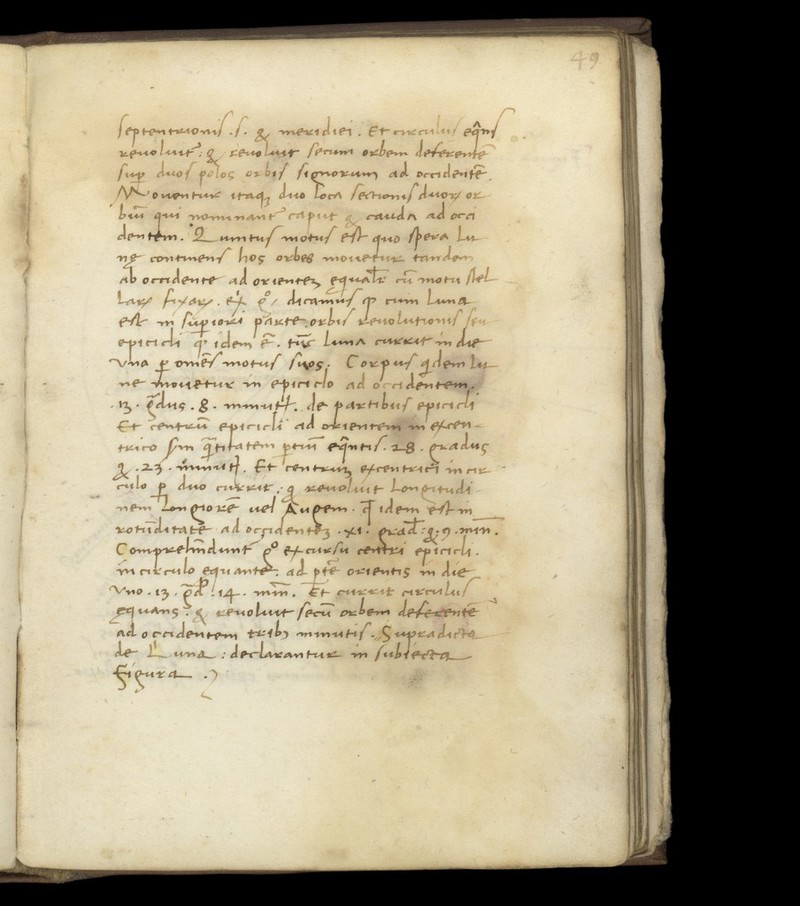 49
septentrionis .s. & meridiei. Et circulus eq̃ns
reuoluit̃: & reuoluit secum orbem deferentẽ
sup̱ duos polos orbis signorum ad occidentẽ.
Mouentur itaqꝫ duo loca sectionis duoꝝ or
biũ qui nominant̃ caput & cauda ad occi
dentem. Quintus motus est quo spera lu
nę continens hos orbes mouetur tandem
ab occidente ad orientem ęqual̃r cũ motu stel
laꝝ fixaꝝ. dicamus ꝙ cum luna
est in sup̱iori parte orbis reuolutionis seu
epicicli qđ idem ẽ. tũc luna currit in die
vna p̱ om̃es motus suos. Corpus q̃dem lu
ne mouetur in epiciclo ad occidentem.
.13. g̃dus .8. minut̃. de partibus epicicli
Et centrũ epicicli ad orientem in excen-
trico sm̃ q̃titatem p̱tiũ eq̃ntis .28. gradus
& .23. minut̃. Et centrum excentrici in cir
culo p̱ duo currit: q̃ reuoluit longitudi
nem longiorẽ uel Augem. qđ idem est in
rotũditatẽ ad occidentem .xi. grad̃: & .9. min̄.
Comprehẽdunt g° excursu centri epicicli.
in circulo equante. ad p̱tẽ orientis in die
vno .13. g̃d .14. min̄. Et currit circulus
ęquans: & reuoluit secũ orbem deferentẽ
ad occidentem tribꝫ minutis. Supradicta
de Luna: declarantur in subiecta
Figura.